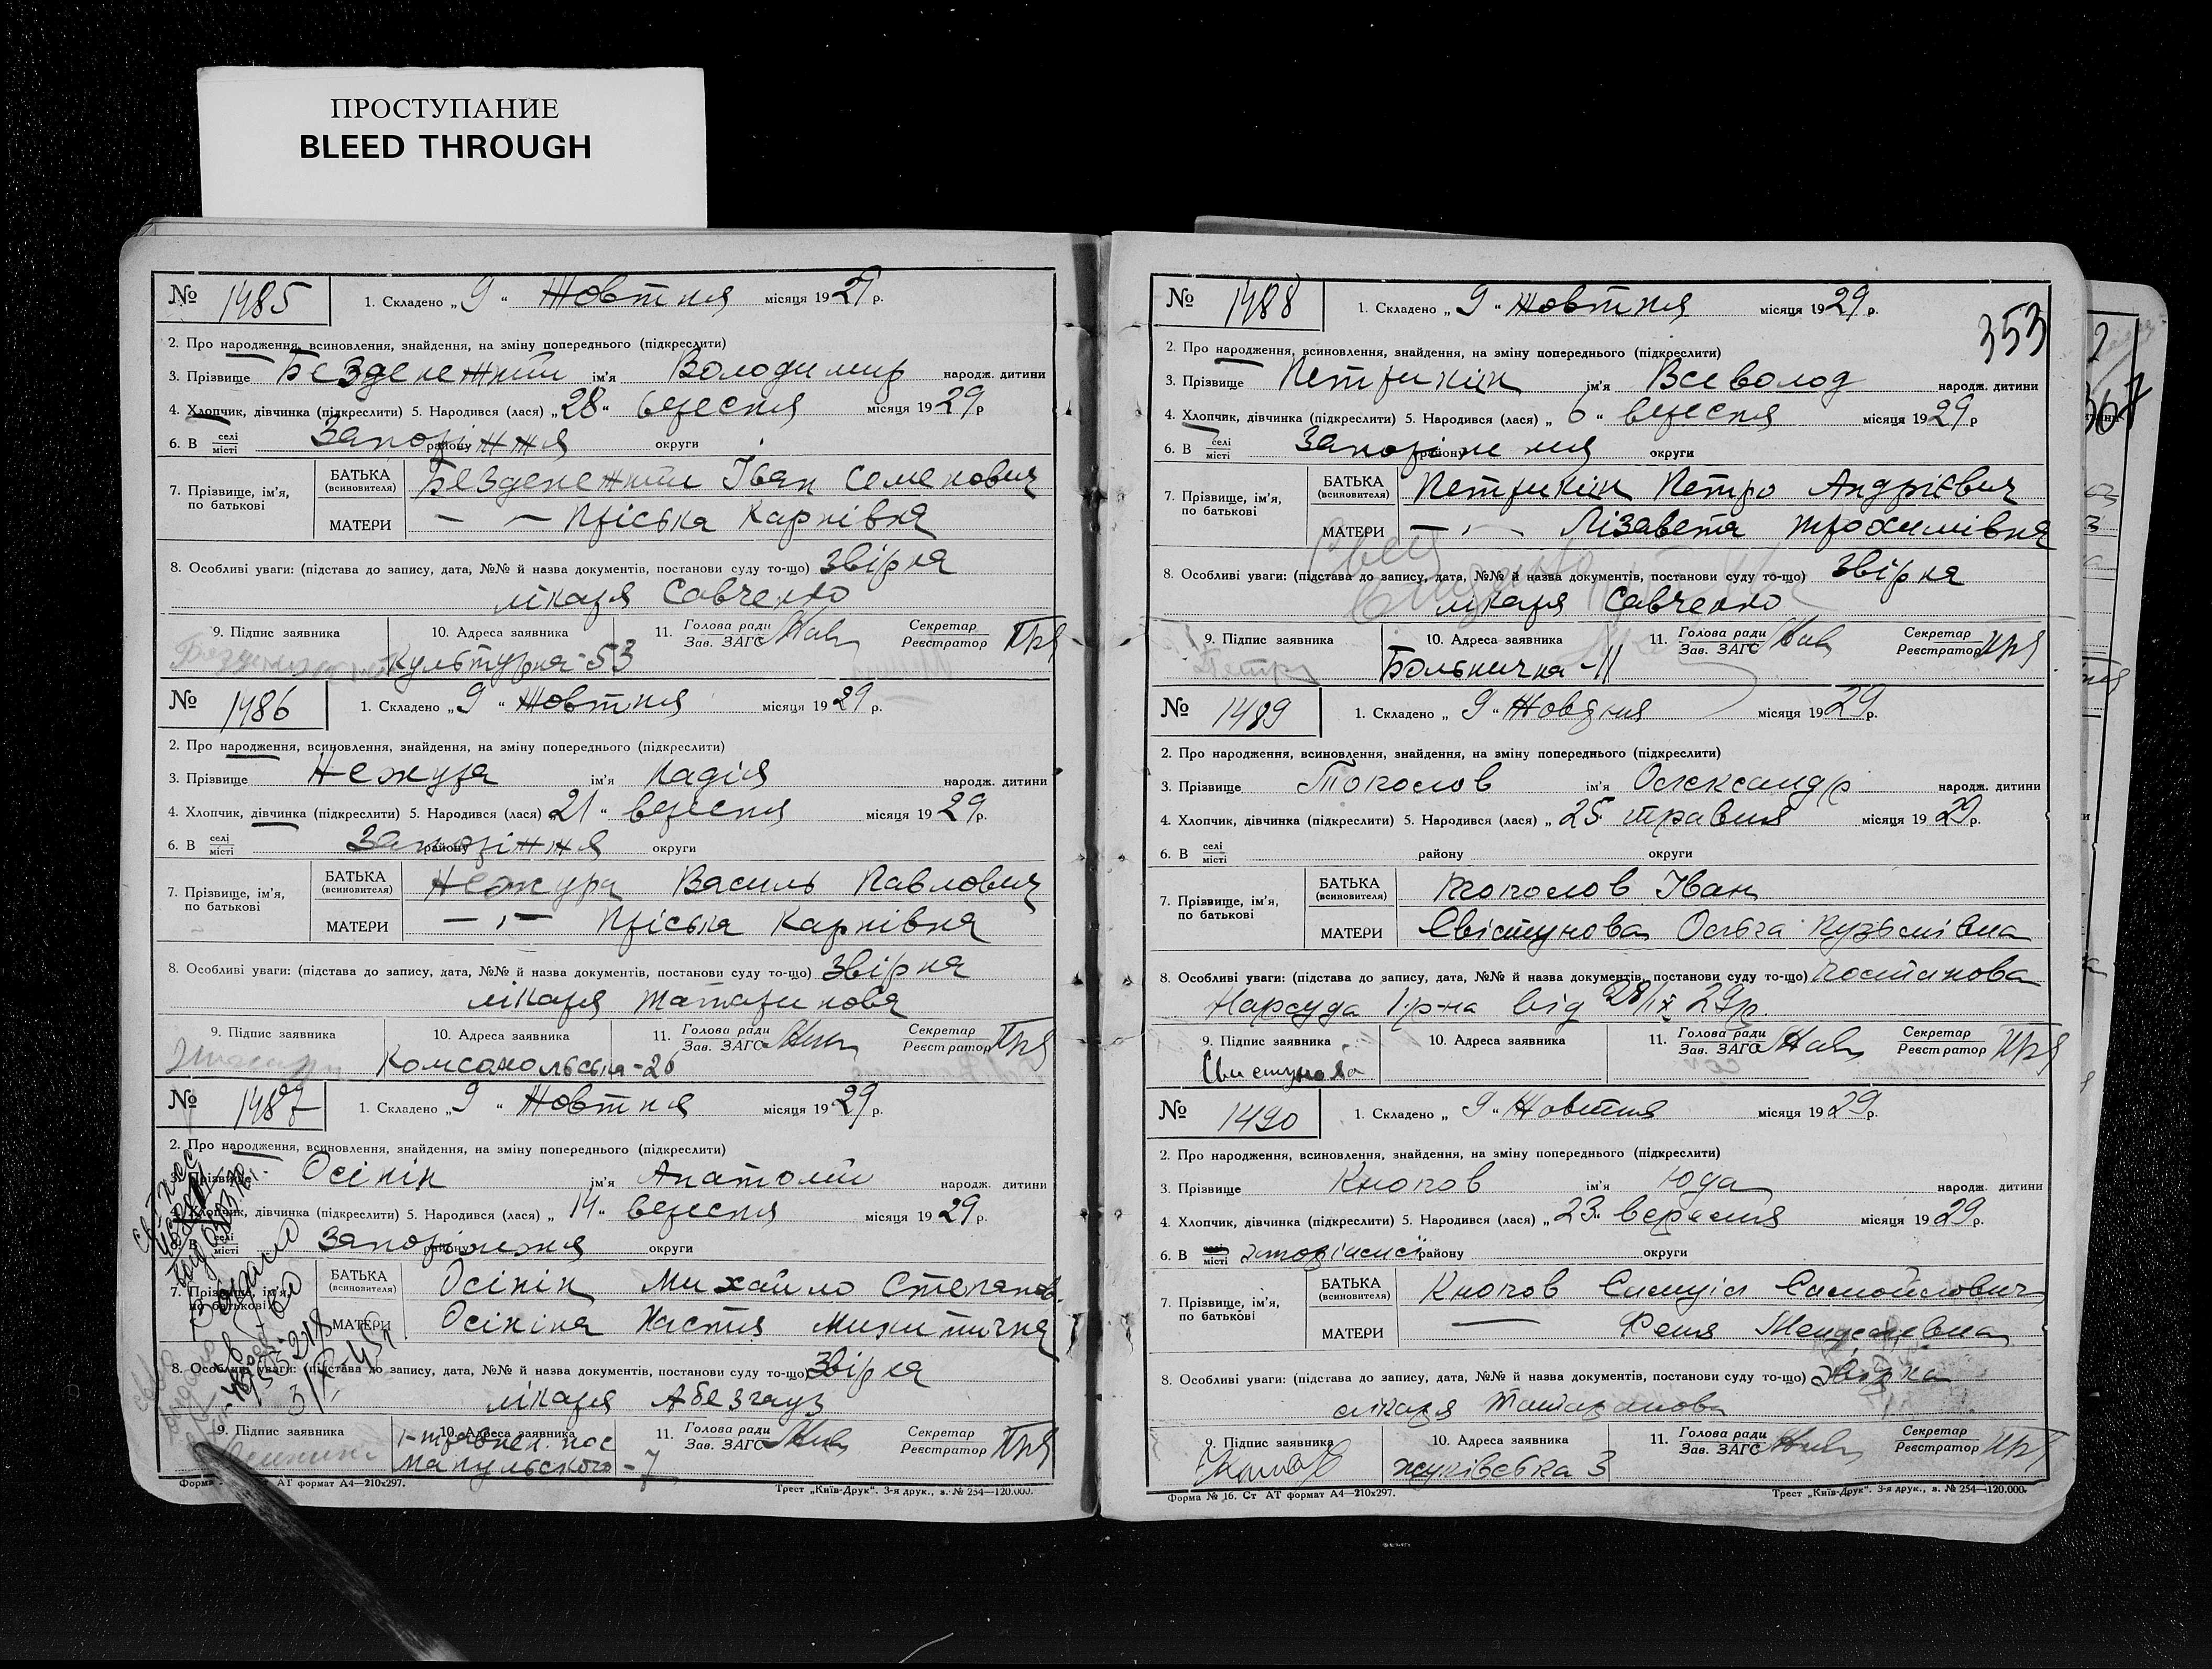 ПРОСТУПАНИЕ
BLEED THROUGH
№ 1485 1. Складено „ 9 “ Жовтня місяця 1929 р.
2. Про народження, всиновлення, знайдення, на зміну попереднього (підкреслити)
3. Прізвище Безденежний ім'я Володимир народж. дитини
4. Хлопчик, дівчинка (підкреслити) 5. Народився (лася) „ 28 “ вересня місяця 1929 р
6. В селі місті Запоріжжя району округи
7. Прізвище, ім'я, по батькові БАТЬКА (всиновителя) Безденежний Іван Семенович
МАТЕРИ — — Пріська Карпівна
8. Особливі уваги: (підстава до запису, дата, №№ й назва документів, постанови суду то-що) Звірка
лікаря Савченко
9. Підпис заявника 10. Адреса заявника 11. Голова ради Зав. ЗАГС Секретар Реєстратор
Культурна - 53
№ 1486 1. Складено „ 9 “ Жовтня місяця 1929 р.
2. Про народження, всиновлення, знайдення, на зміну попереднього (підкреслити)
3. Прізвище Нежура ім'я Надія народж. дитини
4. Хлопчик, дівчинка (підкреслити) 5. Народився (лася) 21 “ вересня місяця 1929 р.
6. В селі місті Запоріжжя району округи
7. Прізвище, ім'я, по батькові БАТЬКА (всиновителя) Нежура Василь Павлович
МАТЕРИ — „ — Пріська Карпівна
8. Особливі уваги: (підстава до запису, дата, №№ й назва документів, постанови суду то-що) Звірка
лікаря Татаринова
9. Підпис заявника 10. Адреса заявника 11. Голова ради Зав. ЗАГС Секретар Реєстратор
Комсомольська - 26
№ 1487 1. Складено „ 9 “ Жовтня місяця 1929 р.
2. Про народження, всиновлення, знайдення, на зміну попереднього (підкреслити)
3. Прізвище Осінін ім'я Анатолій народж. дитини
4. Хлопчик, дівчинка (підкреслити) 5. Народився (лася) „ 14 “ вересня місяця 1929 р.
6. В селі місті Запоріжжя району округи
7. Прізвище, ім'я, по батькові БАТЬКА (всиновителя) Осінін Михайло Степанов.
МАТЕРИ Осініна Настя Микитична
8. Особливі уваги: (підстава до запису, дата, №№ й назва документів, постанови суду то-що) Звірка
лікаря Абезгауз
9. Підпис заявника 10. Адреса заявника 11. Голова ради Зав. ЗАГС Секретар Реєстратор
- 7
Форма АТ формат А4—210х297. Трест „Київ-Друк“. 3-я друк., з. № 254—120.000.
353
№ 1488 1. Складено „ 9 “ Жовтня місяця 1929 р.
2. Про народження, всиновлення, знайдення, на зміну попереднього (підкреслити)
3. Прізвище Петрикін ім'я Всеволод народж. дитини
4. Хлопчик, дівчинка (підкреслити) 5. Народився (лася) „ 6 “ вересня місяця 1929 р
6. В селі місті Запоріжжя району округи
7. Прізвище, ім'я, по батькові БАТЬКА (всиновителя) Петрикін Петро Андрієвич
МАТЕРИ — „ — Лізавета Трохимівна
8. Особливі уваги: (підстава до запису, дата, №№ й назва документів, постанови суду то-що) Звірка
лікаря Савченко
9. Підпис заявника 10. Адреса заявника 11. Голова ради Зав. ЗАГС Секретар Реєстратор
Больнична - 11
№ 1489 1. Складено „ 9 “ Жовтня місяця 1929 р.
2. Про народження, всиновлення, знайдення, на зміну попереднього (підкреслити)
3. Прізвище Топослов ім'я Олександр народж. дитини
4. Хлопчик, дівчинка (підкреслити) 5. Народився (лася) „ 25 травня місяця 1929 р.
6. В селі місті району округи
7. Прізвище, ім'я, по батькові БАТЬКА (всиновителя) Іван
МАТЕРИ Свістунова Ольга Кузьмівна
8. Особливі уваги: (підстава до запису, дата, №№ й назва документів, постанови суду то-що) постанова
Нарсуда 1 р-на від 28/IX 29 р.
9. Підпис заявника 10. Адреса заявника 11. Голова ради Зав. ЗАГС Секретар Реєстратор
Свистунова
№ 1490 1. Складено „ 9 “ Жовтня місяця 1929 р.
2. Про народження, всиновлення, знайдення, на зміну попереднього (підкреслити)
3. Прізвище Кнопов ім'я Юда народж. дитини
4. Хлопчик, дівчинка (підкреслити) 5. Народився (лася) „ 23 “ вересня місяця 1929 р.
6. В селі місті району округи
7. Прізвище, ім'я, по батькові БАТЬКА (всиновителя) Кнопов Самуіл Самойлович
МАТЕРИ — Феня Менделевна
8. Особливі уваги: (підстава до запису, дата, №№ й назва документів, постанови суду то-що) Звірка
лікаря Татаринова
9. Підпис заявника 10. Адреса заявника 11. Голова ради Зав. ЗАГС Секретар Реєстратор
жуківська 3
Форма № 16. Ст АТ формат А4—210х297. Трест „Київ-Друк“. 3-я друк., з. № 254—120.000.